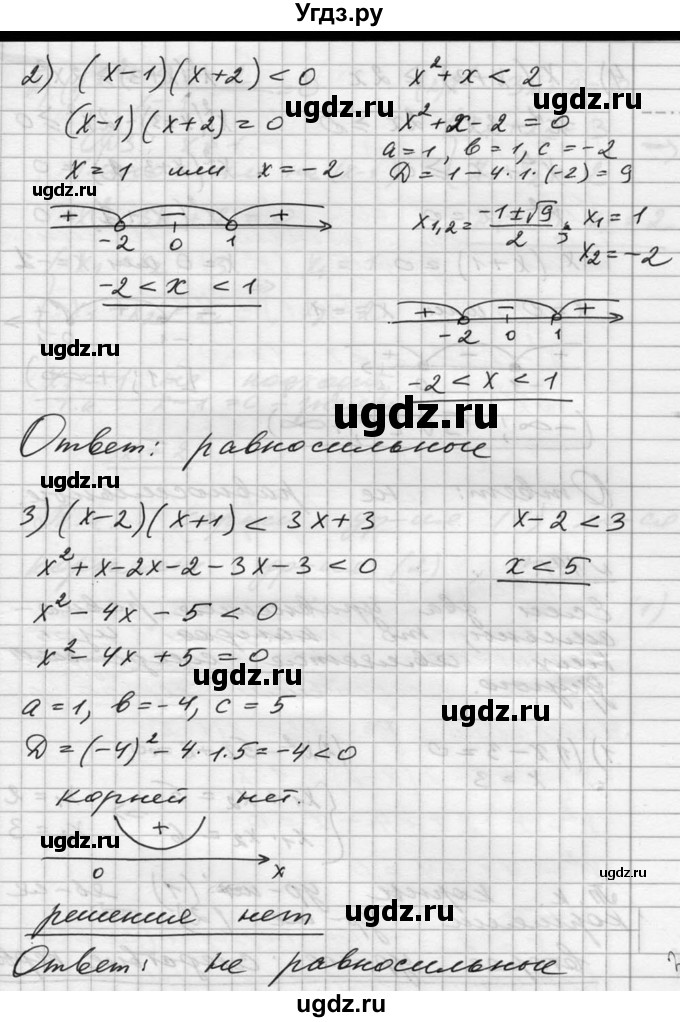 Угдз.ру
2) (x-1)(x+2) < 0
(x-1)(x+2) = 0
x = 1 или x = -2
+ - +
-2 0 1
-2 < x < 1
x² + x < 2
x² + x - 2 = 0
a = 1, b = 1, c = -2
D = 1 - 4·1·(-2) = 9
x₁,₂ = (-1±√9)/2; x₁ = 1
x₂ = -2
+ - +
-2 0 1
-2 < x < 1
Ответ: равносильные
3) (x-2)(x+1) < 3x+3
x² + x - 2x - 2 - 3x - 3 < 0
x² - 4x - 5 < 0
x² - 4x + 5 = 0
a = 1, b = -4, c = 5
D = (-4)² - 4·1·5 = -4 < 0
корней нет.
+
0 x
решение нет
x - 2 < 3
x < 5
Ответ: не равносильные
ugdz.ru
ugdz.ru
ugdz.ru
ugdz.ru
ugdz.ru
ugdz.ru
ugdz.ru
ugdz.ru
ugdz.ru
ugdz.ru
ugdz.ru
ugdz.ru